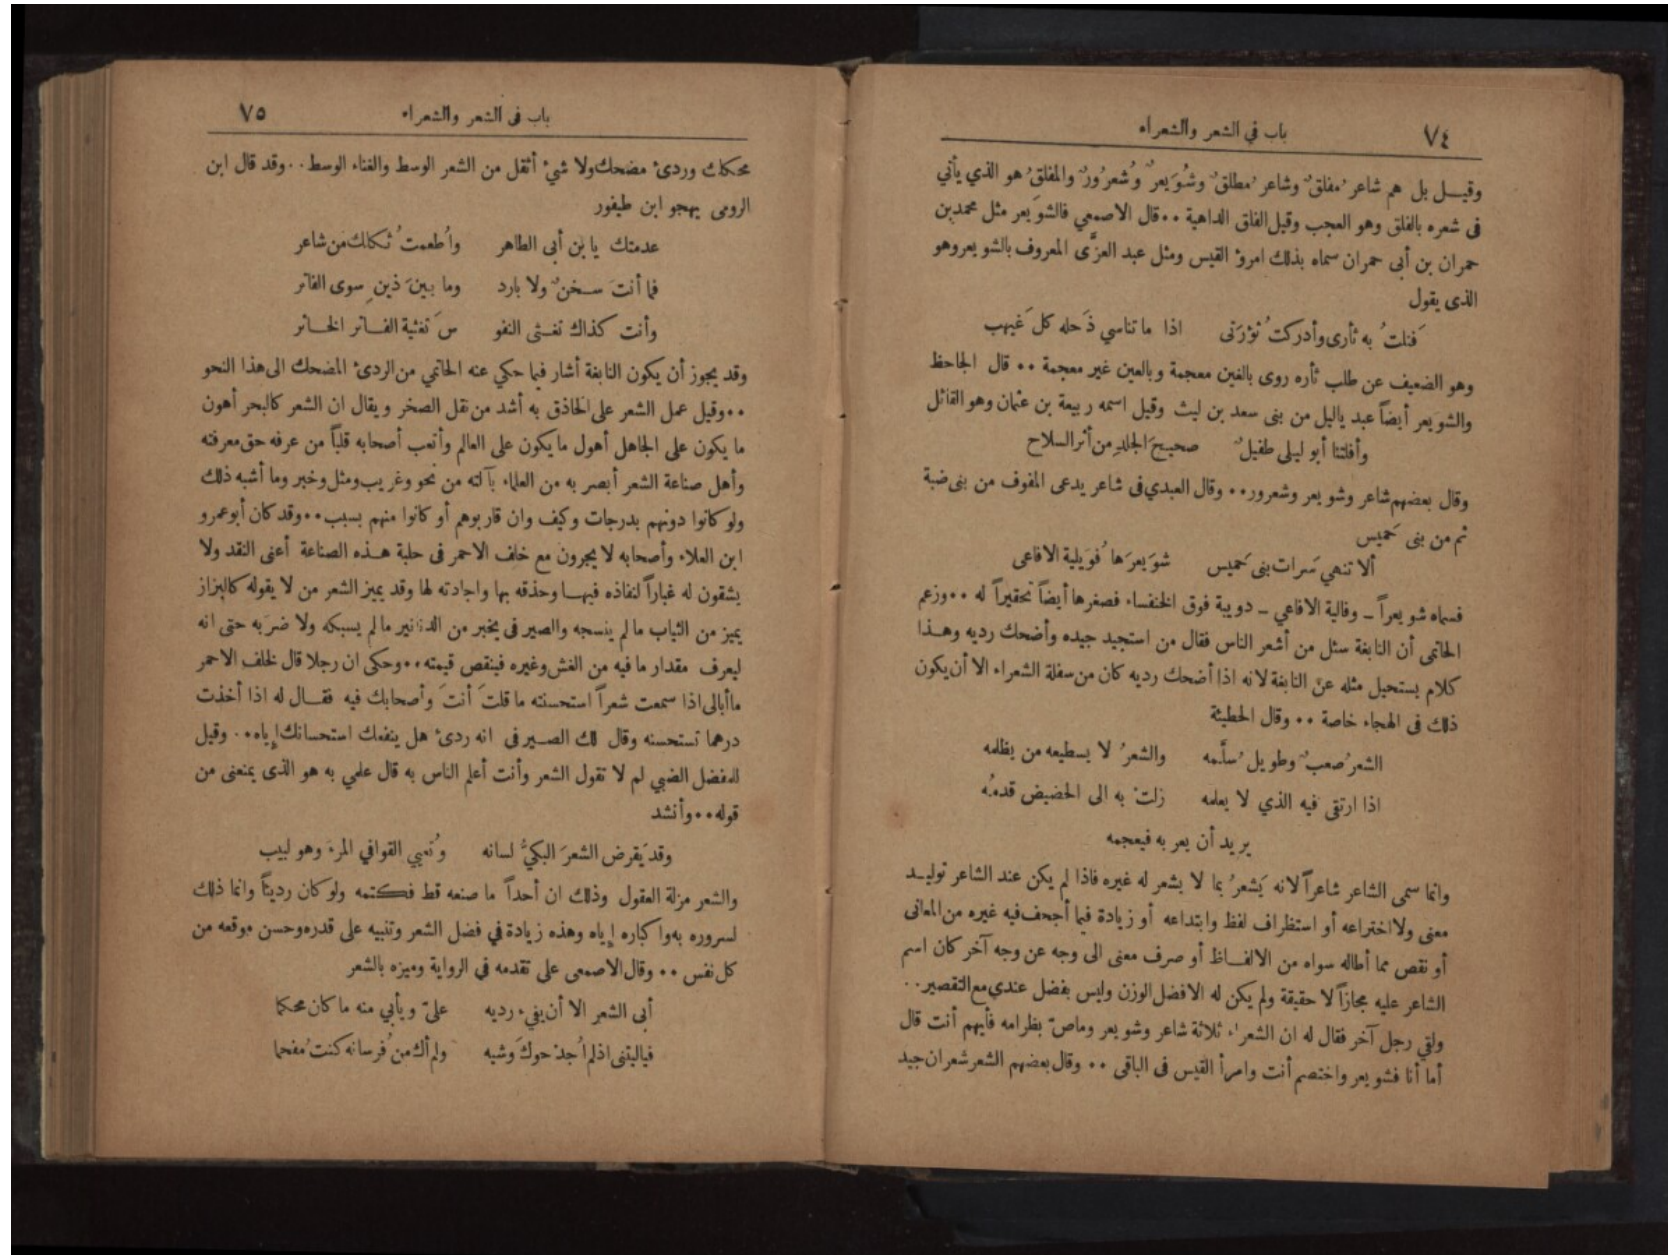 ٧٤
باب في الشعر والشعراء
وقيل بل هم شاعر مُفلقٌ وشاعر مُطلقٌ وشُوَيعرٌ وشُعرُورٌ والمفلقُ هو الذي يأتي
في شعره بالفلق وهو العجب وقيل الفلق الداهية ٠٠ قال الاصمعي فالشوَيعر مثل محمد بن
حمران بن أبي حمران سماه بذلك امرؤ القيس ومثل عبد العزَّى المعروف بالشويعر وهو
الذى يقول
فَنلتُ به ثأرى وأدركتُ ثؤرَتى اذا ما تناسي ذَحله كل غَيهب
وهو الضعيف عن طلب ثأره روى بالغين معجمة وبالعين غير معجمة ٠٠ قال الجاحظ
والشويعر أيضاً عبد ياليل من بنى سعد بن ليث وقيل اسمه ربيعة بن عثمان وهو القائل
وأفلتنا أبو ليلى طفيلٌ صحيحَ الجلدِ من أثر السلاح
وقال بعضهم شاعر وشويعر وشعرور ٠٠ وقال العبدي فى شاعر يدعى المفوف من بنى ضبة
ثم من بنى حَميس
ألا تنهي سَرات بنى حَميس شوَيعرَها فُوَيلية الافاعى
فسماه شويعراً ـ وفالية الافاعي ـ دويبة فوق الخنفساء فصغرها أيضاً تحقيراً له ٠٠ وزعم
الحاتمى أن النابغة سئل من أشعر الناس فقال من استجيد جيده وأضحك رديه وهذا
كلام يستحيل مثله عن النابغة لانه اذا أضحك رديه كان من سفلة الشعراء الا أن يكون
ذلك فى الهجاء خاصة ٠٠ وقال الحطيئة
الشعرُ صعبٌ وطويل سُلَّمه والشعرُ لا يسطيعه من يظلمه
اذا ارتقى فيه الذي لا يعلمه زلتْ به الى الحضيض قدمُه
يريد أن يعربه فيعجمه
وانما سمى الشاعر شاعراً لانه يَشعرُ بما لا يشعر له غيره فاذا لم يكن عند الشاعر توليد
معنى ولا اختراعه أو استظراف لفظ وابتداعه أو زيادة فيما أجحف فيه غيره من المعانى
أو نقص مما أطاله سواه من الالفاظ أو صرف معنى الى وجه عن وجه آخر كان اسم
الشاعر عليه مجازاً لا حقيقة ولم يكن له الافضل الوزن وليس بفضل عندي مع التقصير ٠٠
ولقي رجل آخر فقال له ان الشعراء ثلاثة شاعر وشويعر وماصّ بظر امه فأيهم أنت قال
أما أنا فشويعر واختصم أنت وامرأ القيس فى الباقى ٠٠ وقال بعضهم الشعر شعران جيد
باب فى الشعر والشعراء
٧٥
محكك وردئ مضحك ولا شئ أثقل من الشعر الوسط والغناء الوسط ٠٠ وقد قال ابن
الرومى يهجو ابن طيفور
عدمتك يا بن أبى الطاهر وأُطعمتُ ثكلك من شاعر
فما أنتَ سخنٌ ولا بارد وما بينَ ذينِ سوى الفاتر
وأنت كذاك تغثى النفو سَ تغثية الفاتر الخاثر
وقد يجوز أن يكون النابغة أشار فيما حكي عنه الحاتمي من الردئ المضحك الى هذا النحو
٠٠ وقيل عمل الشعر على الحاذق به أشد من نقل الصخر ويقال ان الشعر كالبحر أهون
ما يكون على الجاهل أهول ما يكون على العالم وأتعب أصحابه قلباً من عرفه حق معرفته
وأهل صناعة الشعر أبصر به من العلماء بآلته من نحو وغريب ومثل وخبر وما أشبه ذلك
ولو كانوا دونهم بدرجات وكيف وان قاربوهم أو كانوا منهم بسبب ٠٠ وقد كان أبو عمرو
ابن العلاء وأصحابه لا يجرون مع خلف الاحمر فى حلبة هذه الصناعة أعنى النقد ولا
يشقون له غباراً لنفاذه فيها وحذقه بها واجادته لها وقد يميز الشعر من لا يقوله كالبزاز
يميز من الثياب ما لم ينسجه والصيرفى يخبر من الدنانير ما لم يسبكه ولا ضربه حتى انه
ليعرف مقدار ما فيه من الغش وغيره فينقص قيمته ٠٠ وحكى ان رجلا قال لخلف الاحمر
ماأبالى اذا سمعت شعراً استحسنته ما قلتَ أنتَ وأصحابك فيه فقال له اذا أخذت
درهما تستحسنه وقال لك الصيرفى انه ردئ هل ينفعك استحسانك إياه ٠٠ وقيل
للمفضل الضبي لم لا تقول الشعر وأنت أعلم الناس به قال علمي به هو الذى يمنعنى من
قوله ٠٠ وأنشد
وقد يَقرض الشعرَ البكيُّ لسانه وتُعيي القوافي المرءَ وهو لبيب
والشعر مزلة العقول وذلك ان أحداً ما صنعه قط فكتمه ولو كان رديئاً وانما ذلك
لسروره به واكباره إياه وهذه زيادة في فضل الشعر وتنبيه على قدره وحسن موقعه من
كل نفس ٠٠ وقال الاصمعى على تقدمه في الرواية وميزه بالشعر
أبى الشعر الا أن يفيء رديه علىّ ويأبي منه ما كان محكما
فياليتنى اذ لم أُجدْ حوكَ وشيه ولم أك من فُرسانه كنت مُفحما